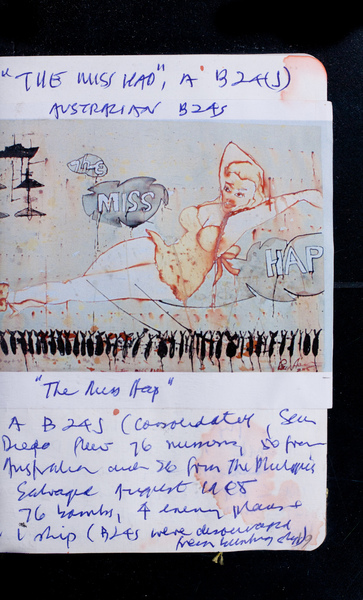 "THE MISS HAP", A B24(J)
AUSTRALIAN B24s
THE
MISS
HAP
"The Miss Hap"
A B24J (Consolidated, San
Diego flew 76 missions, 50 from
Australia and 26 from The Philippines
Salvaged August 1945
76 bombs, 4 enemy planes +
1 ship (B24s were discouraged
from bombing ships)